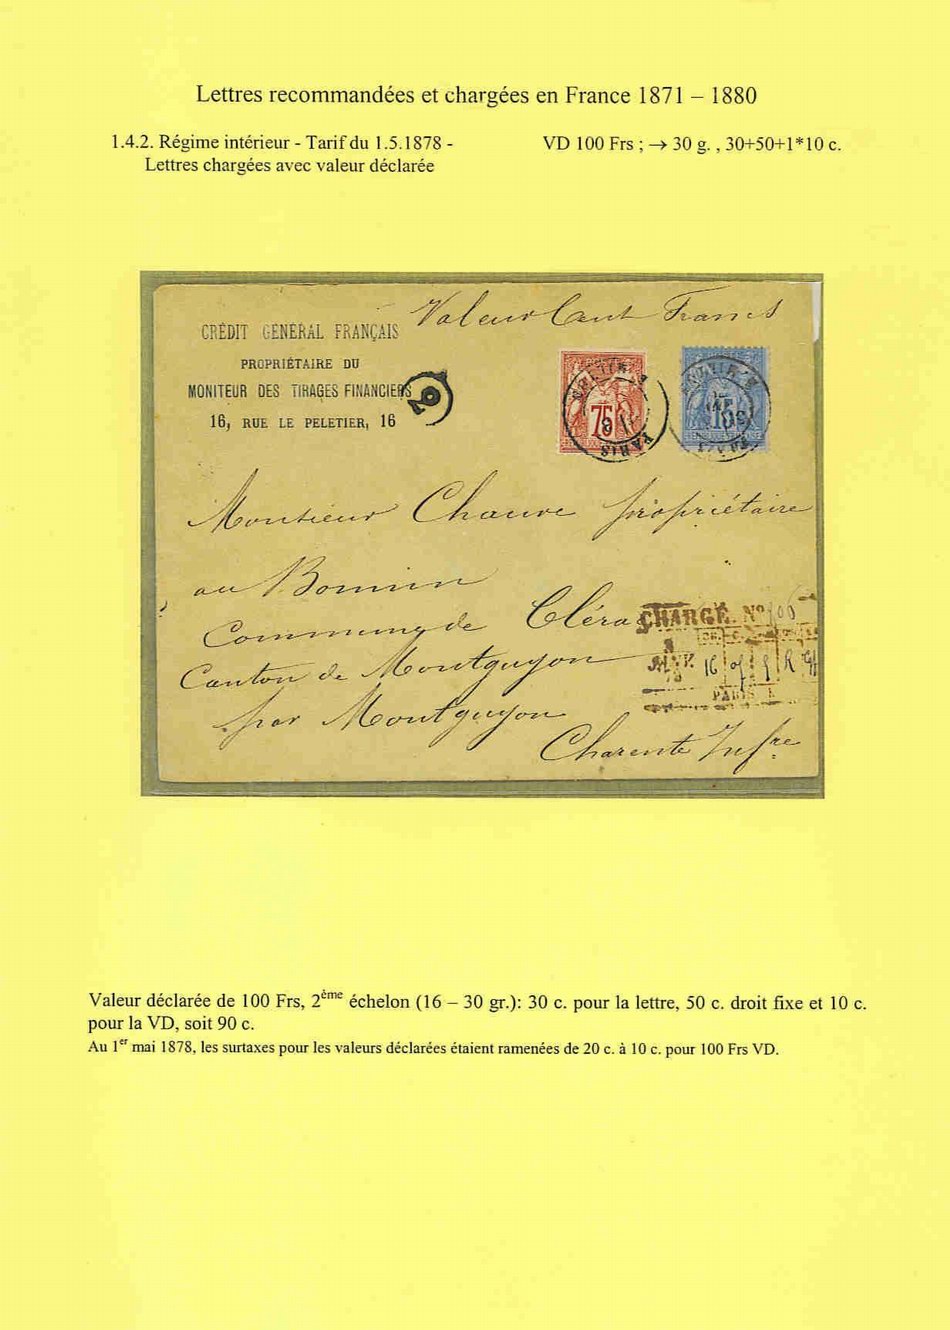 Lettres recommandées et chargées en France 1871 – 1880
1.4.2. Régime intérieur - Tarif du 1.5.1878 - VD 100 Frs ; → 30 g. , 30+50+1*10 c.
Lettres chargées avec valeur déclarée
Valeur Cent Francs
CRÉDIT GÉNÉRAL FRANÇAIS
PROPRIÉTAIRE DU
MONITEUR DES TIRAGES FINANCIERS
16, RUE LE PELETIER, 16
2
75
PARIS
15
PARIS
Monsieur Chauve propriétaire
au Bonnin
Commune de Cléra
CHARGÉ. Nº 106
Canton de Montguyon
JANV. 16
PARIS
par Montguyon
Charente Infre
Valeur déclarée de 100 Frs, 2ème échelon (16 – 30 gr.): 30 c. pour la lettre, 50 c. droit fixe et 10 c.
pour la VD, soit 90 c.
Au 1er mai 1878, les surtaxes pour les valeurs déclarées étaient ramenées de 20 c. à 10 c. pour 100 Frs VD.